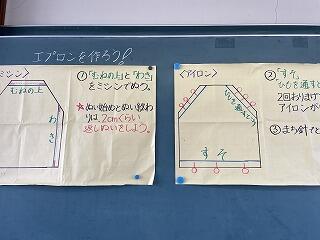 エプロンを作ろう!
ミシン〉
むねの上
わき
①「むねの上」と「わき」
をミシンでぬう。
★ぬい始めとぬい終わ
りは、2cmくらい
返しぬいをする。
〈アイロン〉
ひもを通すところ
すそ
②「すそ」
ひもを通すと
2回おりまげ
アイロンが
③まち針でと